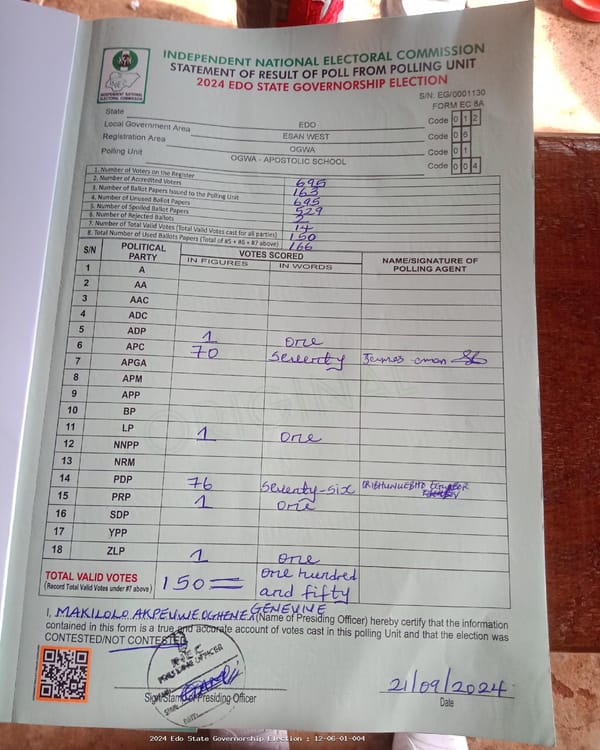 INDEPENDENT NATIONAL ELECTORAL COMMISSION
STATEMENT OF RESULT OF POLL FROM POLLING UNIT
2024 EDO STATE GOVERNORSHIP ELECTION
INDEPENDENT NATIONAL ELECTORAL COMMISSION
S/N: EG/0001130
FORM EC 8A
State EDO Code 0 1 2
Local Government Area ESAN WEST Code 0 6
Registration Area OGWA Code 0 1
Polling Unit OGWA - APOSTOLIC SCHOOL Code 0 0 4
1. Number of Voters on the Register 695
2. Number of Accredited Voters 163
3. Number of Ballot Papers Issued to the Polling Unit 695
4. Number of Unused Ballot Papers 529
5. Number of Spoiled Ballot Papers 2
6. Number of Rejected Ballots 14
7. Number of Total Valid Votes (Total Valid Votes cast for all parties) 150
8. Total Number of Used Ballots Papers (Total of #5 + #6 + #7 above) 166
S/N POLITICAL PARTY VOTES SCORED NAME/SIGNATURE OF POLLING AGENT
IN FIGURES IN WORDS
1 A
2 AA
3 AAC
4 ADC
5 ADP 1 one
6 APC 70 seventy James
7 APGA
8 APM
9 APP
10 BP
11 LP 1 one
12 NNPP
13 NRM
14 PDP 76 seventy-six
15 PRP 1 one
16 SDP
17 YPP
18 ZLP 1 one
ORIGINAL
TOTAL VALID VOTES 150= one hundred and fifty
(Record Total Valid Votes under #7 above)
I, MAKILOLO AKPEVWEOGHENE GENEVINE (Name of Presiding Officer) hereby certify that the information
contained in this form is a true and accurate account of votes cast in this polling Unit and that the election was
CONTESTED/NOT CONTESTED
PRESIDING OFFICER
Sign/Stamp of Presiding Officer
21/09/2024
Date
2024 Edo State Governorship Election : 12-06-01-004